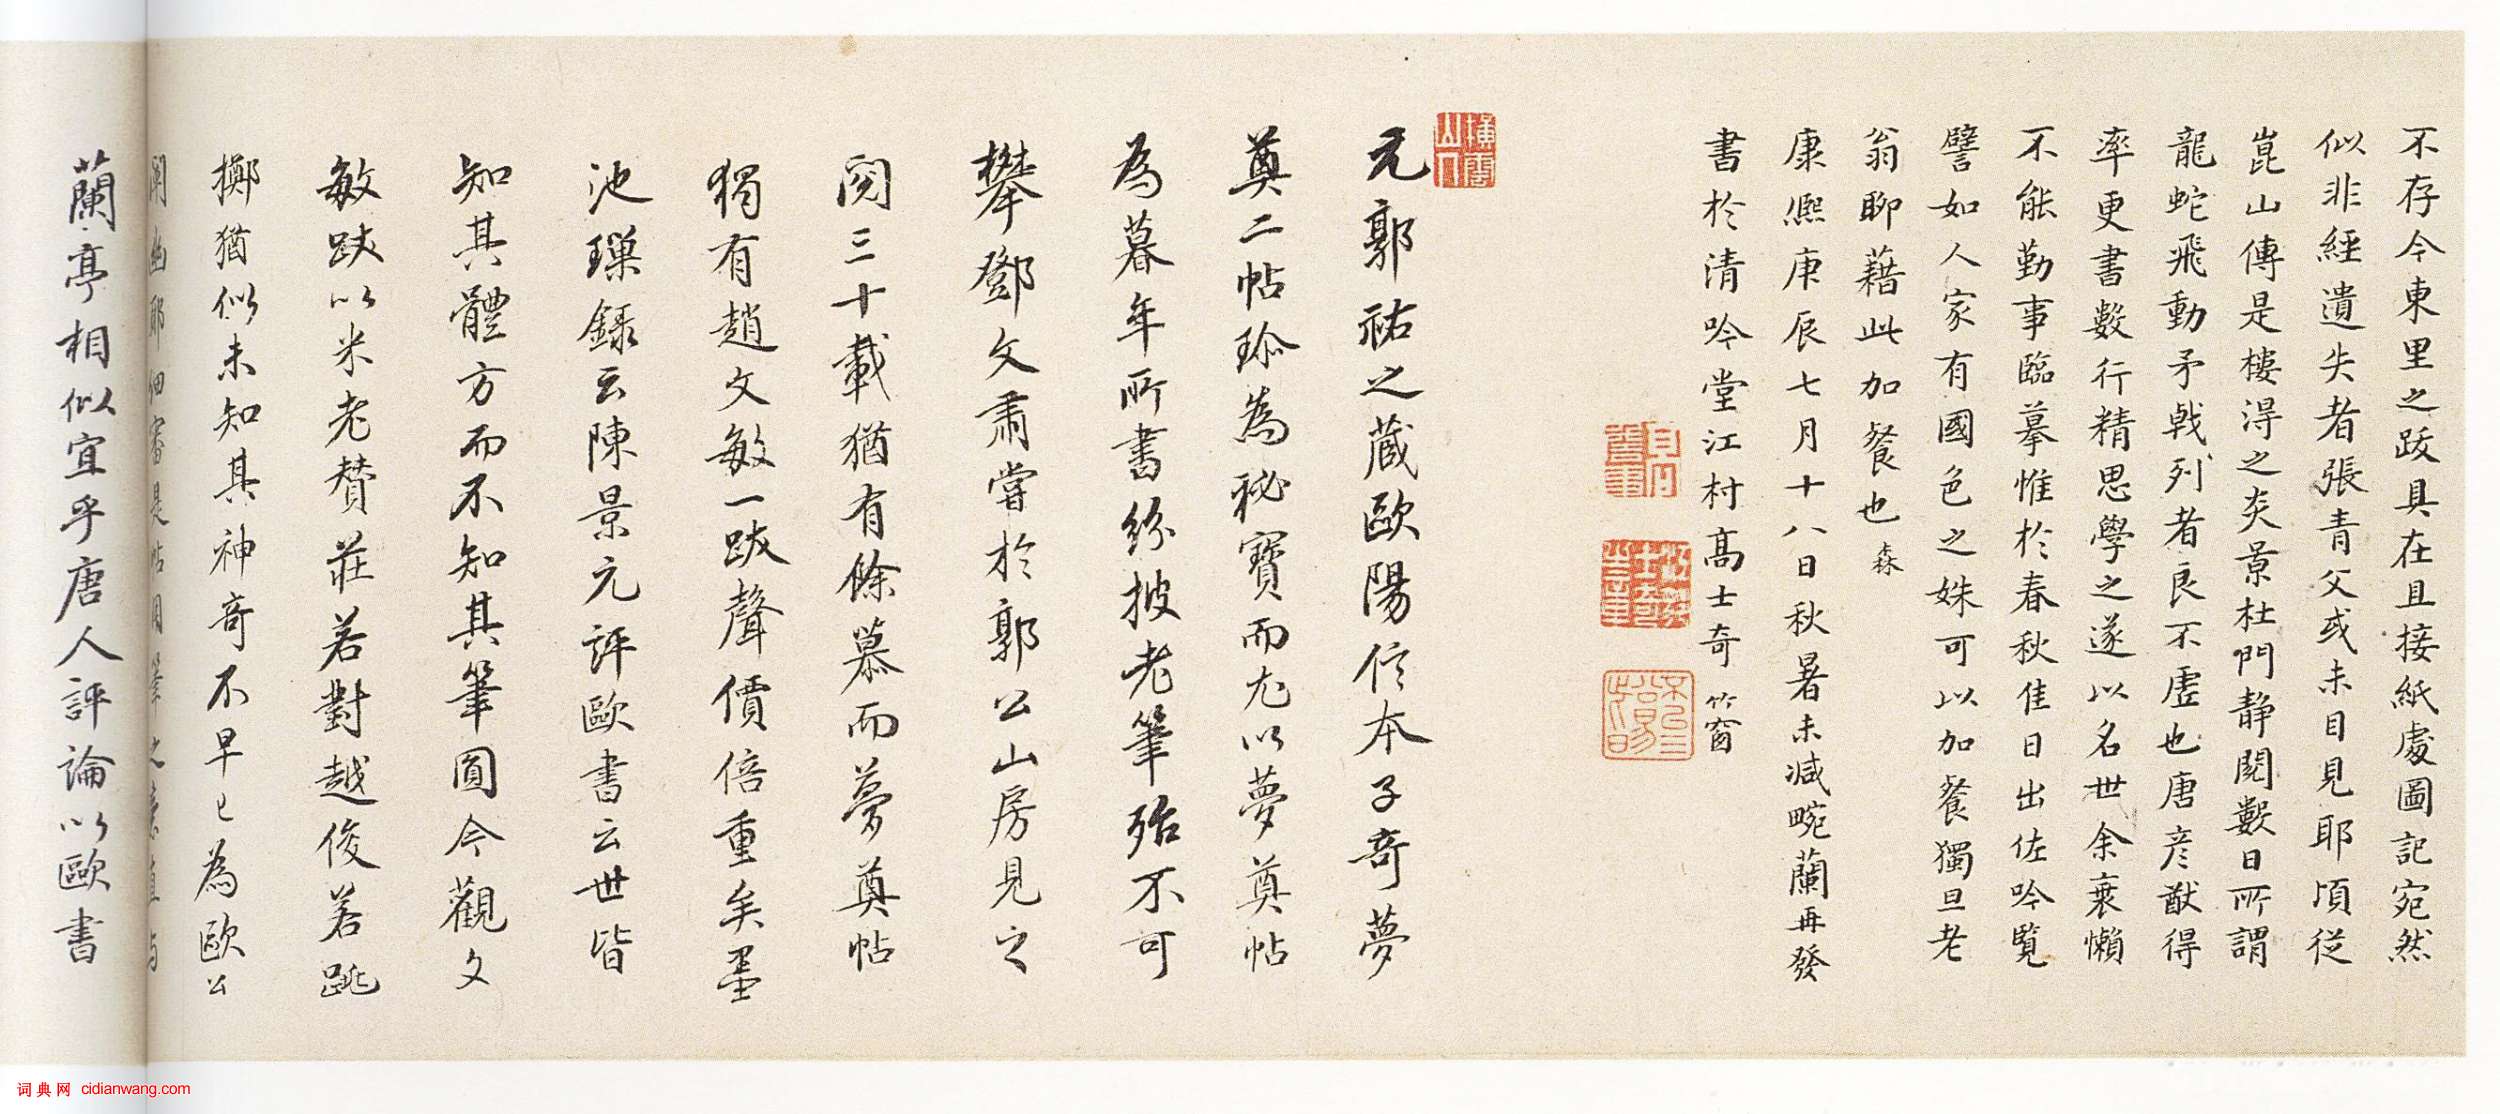 不存今東里之跋具在且接紙處圖記宛然
似非經遺失者張青父或未目見耶頃從
崑山傳是樓淂之炎景杜門静閱數日所謂
龍蛇飛動矛戟列者良不虛也唐彦猷得
率更書數行精思學之遂以名世余衰懶
不能勤事臨摹惟於春秋佳日出佐吟覧
譬如人家有國色之姝可以加餐獨旦老
翁聊藉此加餐也 森
康熙庚辰七月十八日秋暑未减畹蘭再發
書於清吟堂江村高士奇 竹窗
橫雲山人
元郭祐之蔵歐陽信本子奇夢
奠二帖珎為祕寶而尤以夢奠帖
為暮年所書紛披老筆殆不可
攀鄧文肅嘗於郭公山房見之
閱三十載猶有餘慕而夢奠帖
獨有趙文敏一跋聲價倍重矣墨
池璅錄云陳景元評歐書云世皆
知其體方而不知其筆圓今觀文
敏跋以米老賛莊若對越俊若跳
擲猶似未知其神奇不早已為歐公
闡幽耶細審是帖用筆之意直与
蘭亭相似宜乎唐人評論以歐書
词典网 cidianwang.com